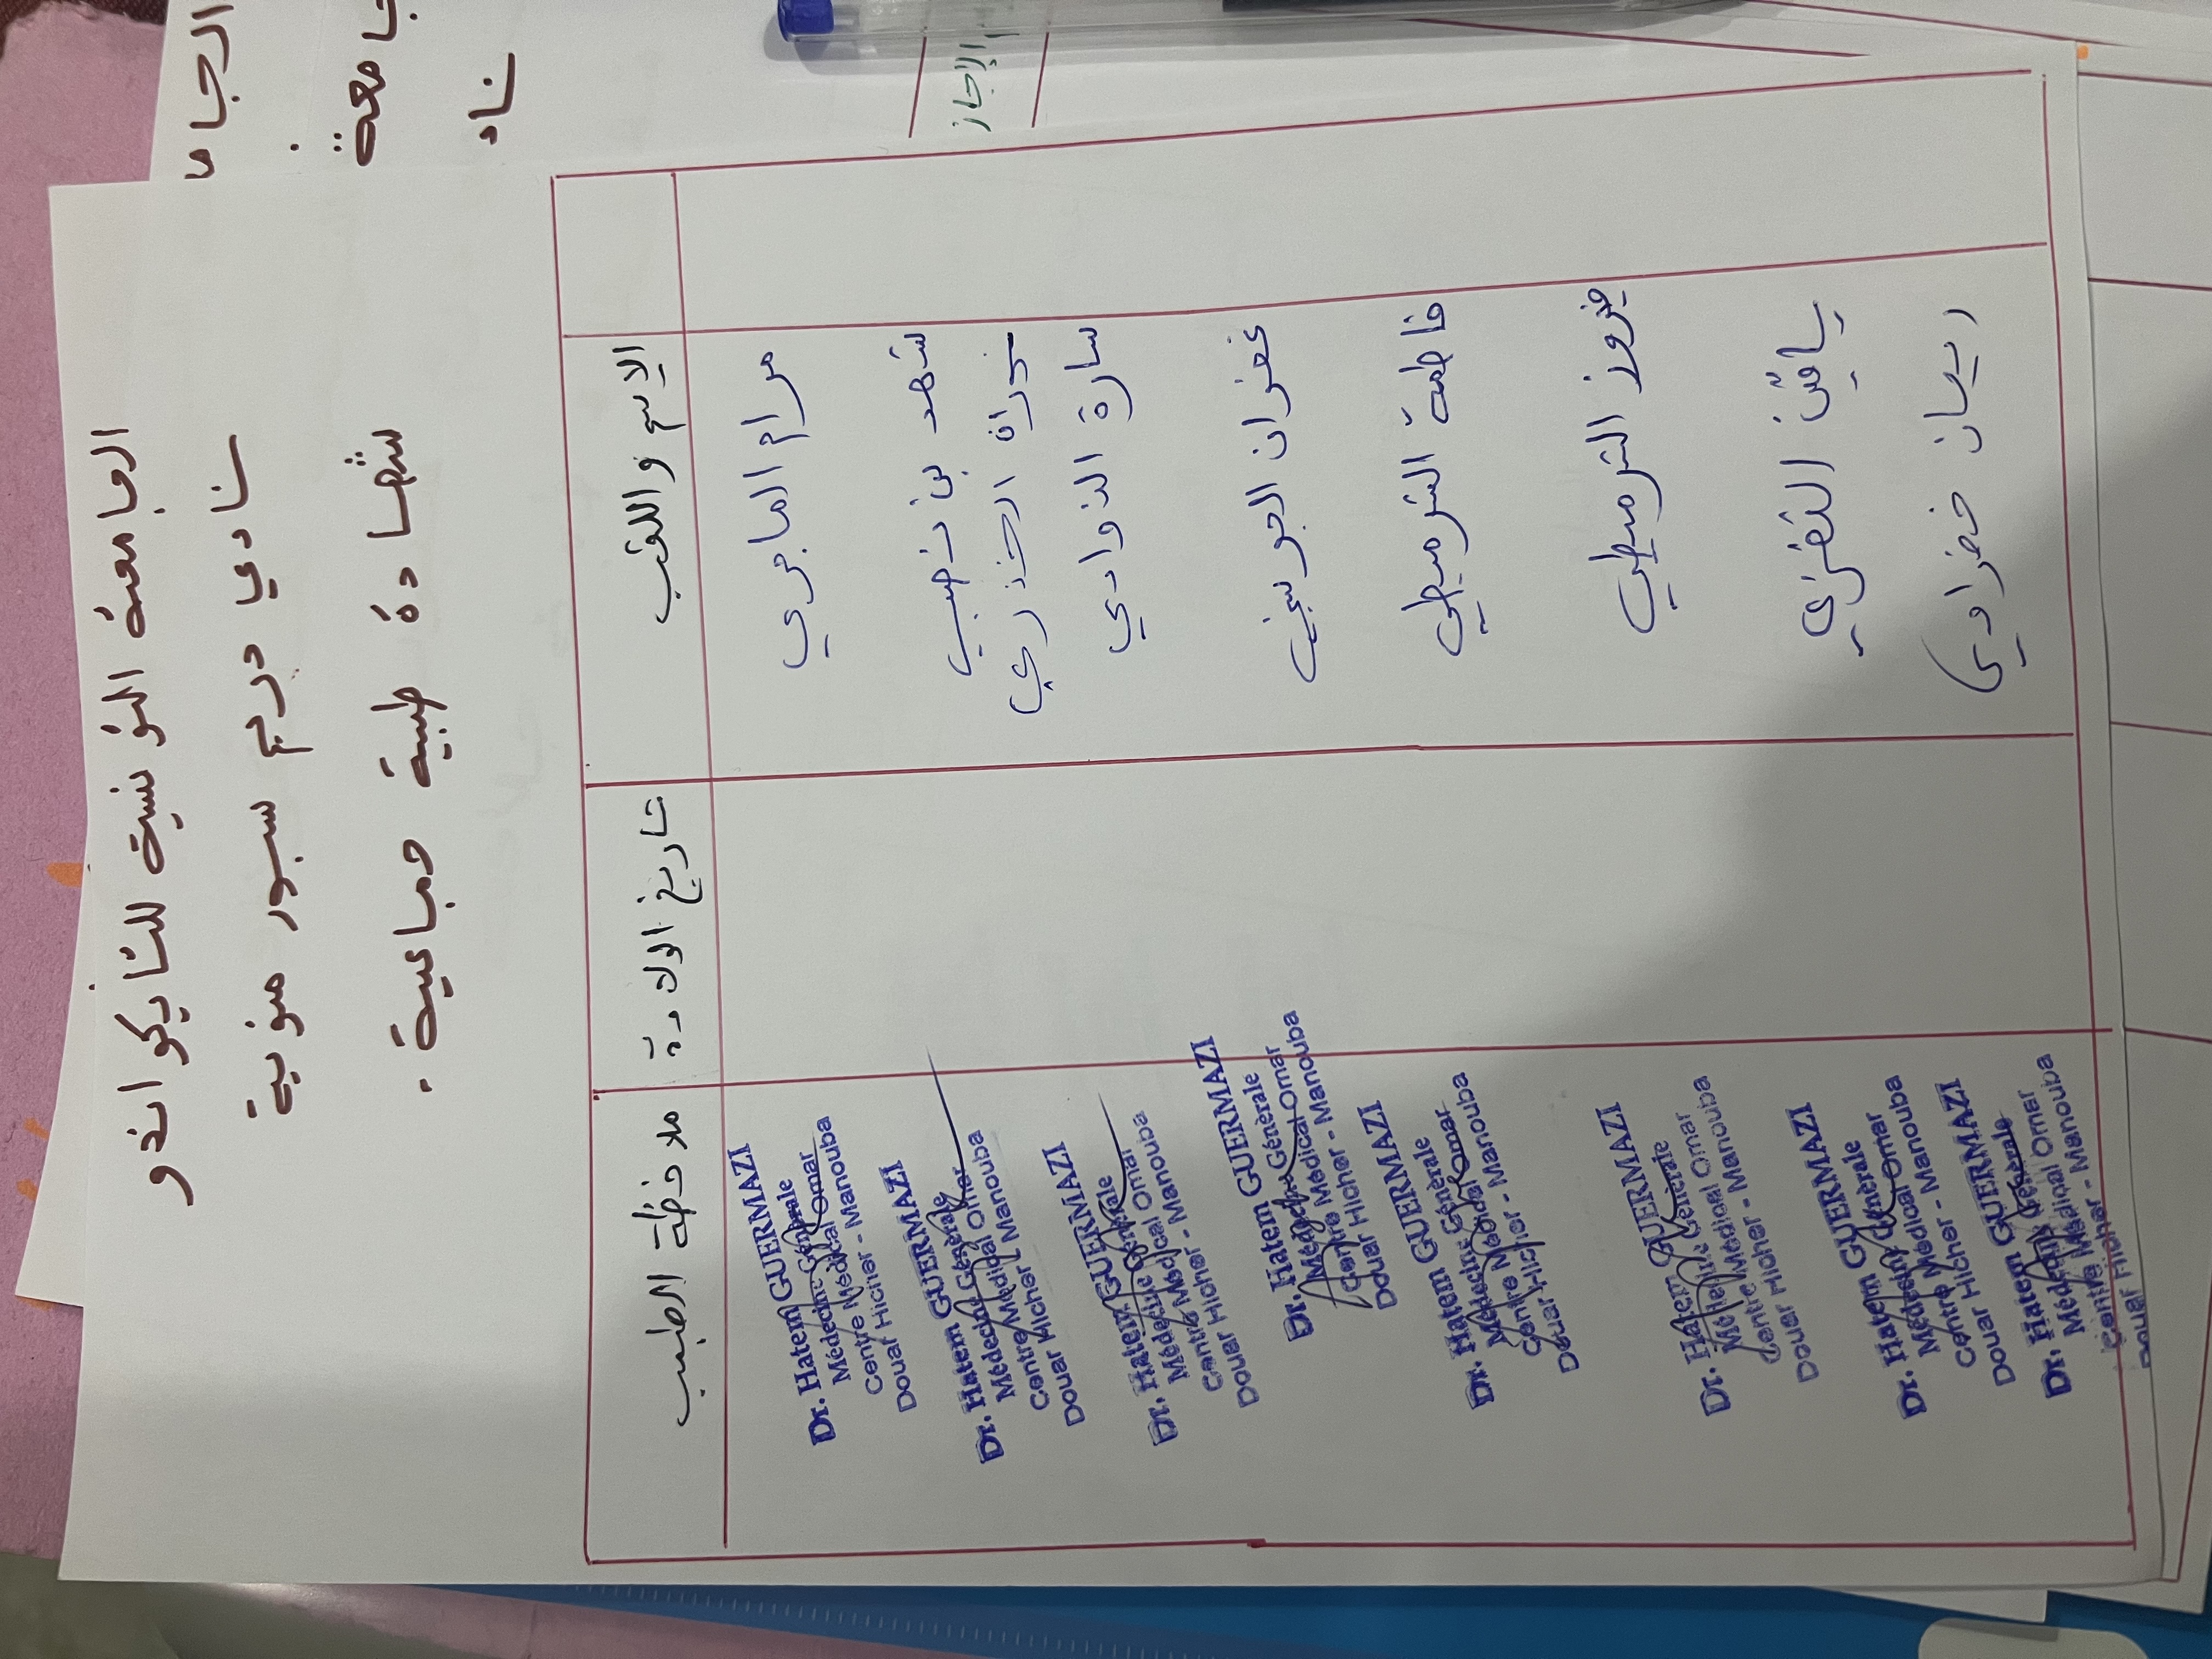 الجامعة التونسية للتايكواندو
نادي دريم سبور منوبة
شهادة طبية جماعية.
الاسم و اللقب
تاريخ الولادة
ملاحظة الطبيب
مرام الماجري
Dr. Hatem GUERMAZI
Médecine Générale
Centre Médical Omar
Douar Hicher - Manouba
شهد بن ذهيب
Dr. Hatem GUERMAZI
Médecine Générale
Centre Médical Omar
Douar Hicher - Manouba
سارة الذوادي
Dr. Hatem GUERMAZI
Médecine Générale
Centre Médical Omar
Douar Hicher - Manouba
غفران
Dr. Hatem GUERMAZI
Médecine Générale
Centre Médical Omar
Douar Hicher - Manouba
فاطمة الترميطي
Dr. Hatem GUERMAZI
Médecine Générale
Centre Médical Omar
Douar Hicher - Manouba
الترميطي
Dr. Hatem GUERMAZI
Médecine Générale
Centre Médical Omar
Douar Hicher - Manouba
Dr. Hatem GUERMAZI
Médecine Générale
Centre Médical Omar
Douar Hicher - Manouba
ريمان خضراوي
Dr. Hatem GUERMAZI
Médecine Générale
Centre Médical Omar
Douar Hicher - Manouba